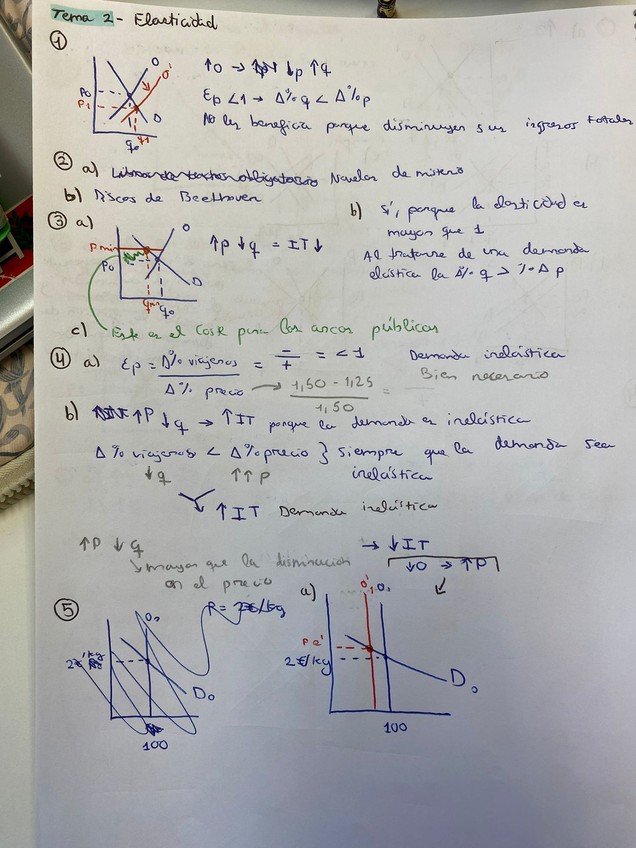 Tema 2 - Elasticidad
①
O
O'
P0
P1
D
q0 q1
↑O → ↓p ↑q
Ep < 1 → Δ% q < Δ% p
No les beneficia porque disminuyen sus ingresos totales
② a) Novelas de misterio
b) Discos de Beethoven
③ a)
O
P min
P0
D
q0
↑p ↓q = IT ↓
b) Sí, porque la elasticidad es
mayor que 1
Al tratarse de una demanda
elástica la Δ% q > % Δ p
c) Este es el coste para las arcas públicas
④ a) Ep = Δ% viajeros / Δ% precio = - / + = < 1 Demanda inelástica
Bien necesario
→ 1,50 - 1,25 / 1,50 =
b) ↑P ↓q → ↑IT porque la demanda es inelástica
Δ % viajeros < Δ% precio } siempre que la demanda sea
↓q ↑↑P inelástica
↑IT Demanda inelástica
↑P ↓q → ↓IT
↳ mayor que la disminución
en el precio
↓O → ↑P
⑤
O0
D0
100
a)
O' O0
Pe'
2€/kg
D0
100